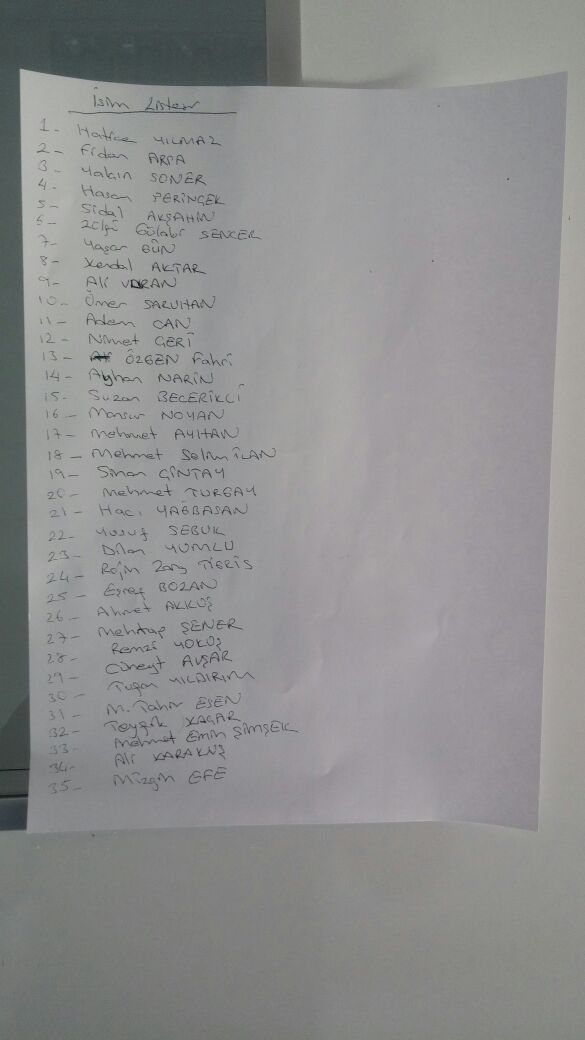 İsim Listesi
1- Hatice YILMAZ
2- Fidan ARPA
3- Yalçın SONER
4- Hasan PERİNÇEK
5- Sidal AKŞAHİN
6- Gülabi SENCER
7- Yaşar GÜN
8- Kendal AKTAR
9- Ali VURAN
10- Ömer SARUHAN
11- Adem CAN
12- Nimet GERİ
13- ÖZGEN Fahri
14- Ayhan NARİN
15- Suzan BECERİKLİ
16- Mansur NOYAN
17- Mehmet AYHAN
18- Mehmet Selim İLAN
19- Sinan ÇİNTAY
20- Mehmet TURGAY
21- Hacı YAĞBASAN
22- Yusuf SEBUK
23- Dilan YUMLU
24- Rojin Zarg TİGRİS
25- Eşref BOZAN
26- Ahmet AKKUŞ
27- Mehtap ŞENER
28- Remzi YOKUŞ
29- Cüneyt AVŞAR
30- YILDIRIM
31- M. Tahir ESEN
32- Teyfik KAÇAR
33- Mehmet Emin ŞİMŞEK
34- Ali KARAKUŞ
35- Mizgin EFE